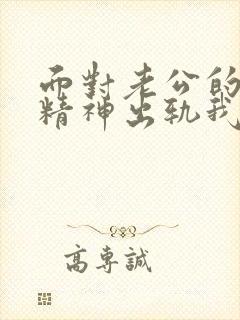 而對老公的
精神出軌我
高專誠